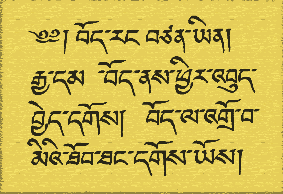 ༄༅། བོད་རང་བཙན་ཡིན།
རྒྱ་དམ བོད་ནས་ཕྱིར་འབུད་
བྱེད་དགོས། བོད་ལ་འགྲོ་བ་
མིའི་ཐོབ་ཐང་དགོས་ཡོས།